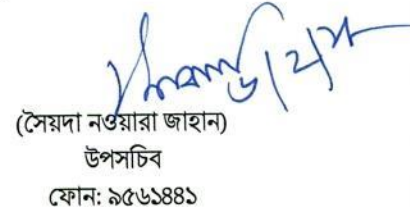 (সৈয়দা নওয়ারা জাহান)
উপসচিব
ফোন: ৯৫৬১৪৪১